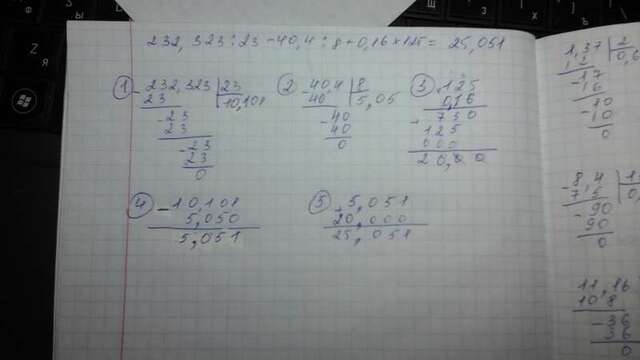 232,323:23-40,4:8+0,16×125= 25,051
1 - 232,323 | 23
23 | 10,101
- 23
23
- 23
23
0
2 - 40,4 | 8
40 | 5,05
- 40
40
0
3 ×125
0,16
+ 750
125
000
20,00
4 - 10,101
5,050
5,051
5 5,051
20,000
25,051
1,37 | 2
12 | 0,6
- 17
- 16
10
- 10
0
- 8,4
7,5
- 90
90
0
11,16
10 8
- 36
36
0
Z
Я